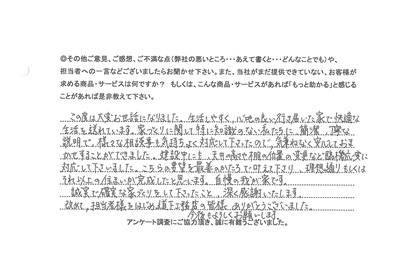 ◎その他ご意見、ご感想、ご不満な点(弊社の悪いところ・・・あえて書くと・・・どんなことでも)や、
担当者への一言などございましたらお聞かせ下さい。また、当社がまだ提供できていない、お客様が
求める商品・サービスは何ですか？ もしくは、こんな商品・サービスがあれば「もっと助かる」と感じる
ことがあれば是非教えて下さい。
この度は大変お世話になりました。生活しやすく、心地の良い行き届いた家で快適な
生活を送れています。家づくりに関して特に知識のない私たちに、簡潔、丁寧な
説明で、様々な相談事も気持ちよく対応して下さったので、気兼ねなく安心しておま
かせすることができました。建設中にも、天井の高さや棚の位置の変更など臨機応変に
対応して下さいました。こちらの要望を最善のかたちで叶えて下さり、理想通りもしくは
それ以上の住まいが完成したと思います。自慢の我が家です。
誠実で確実な家づくりをして下さったこと、深く感謝いたします。
改めて、担当者様をはじめ道下工務店の皆様 ありがとうございました。
今後もよろしくお願いします。
アンケート調査にご協力頂き、誠に有難うございました。